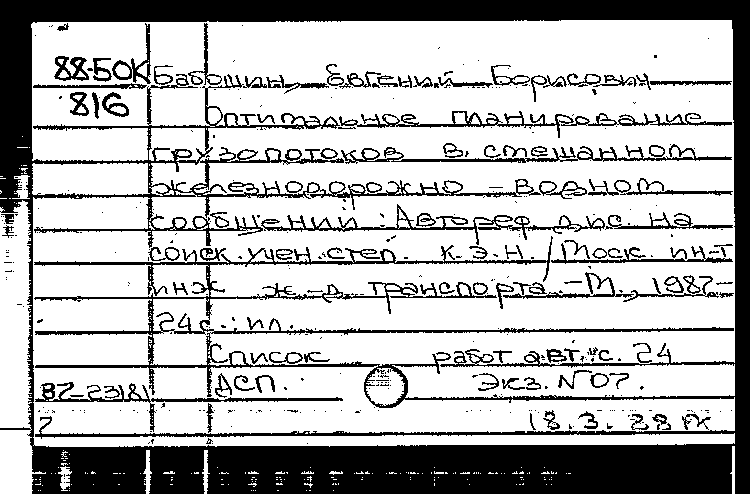 88-50К Бабошин, Евгений Борисович
816 Оптимальное планирование
грузопотоков в смешанном
железнодорожно - водном
сообщений : Автореф. дис. на
соиск. учен. степ. к.э.н. / Моск. ин-т
инж ж.-д. транспорта. - М., 1987 -
24 с. : ил.
Список работ авт.: с. 24
87-23181 ДСП. Экз. N 07.
18.3.88 ГК